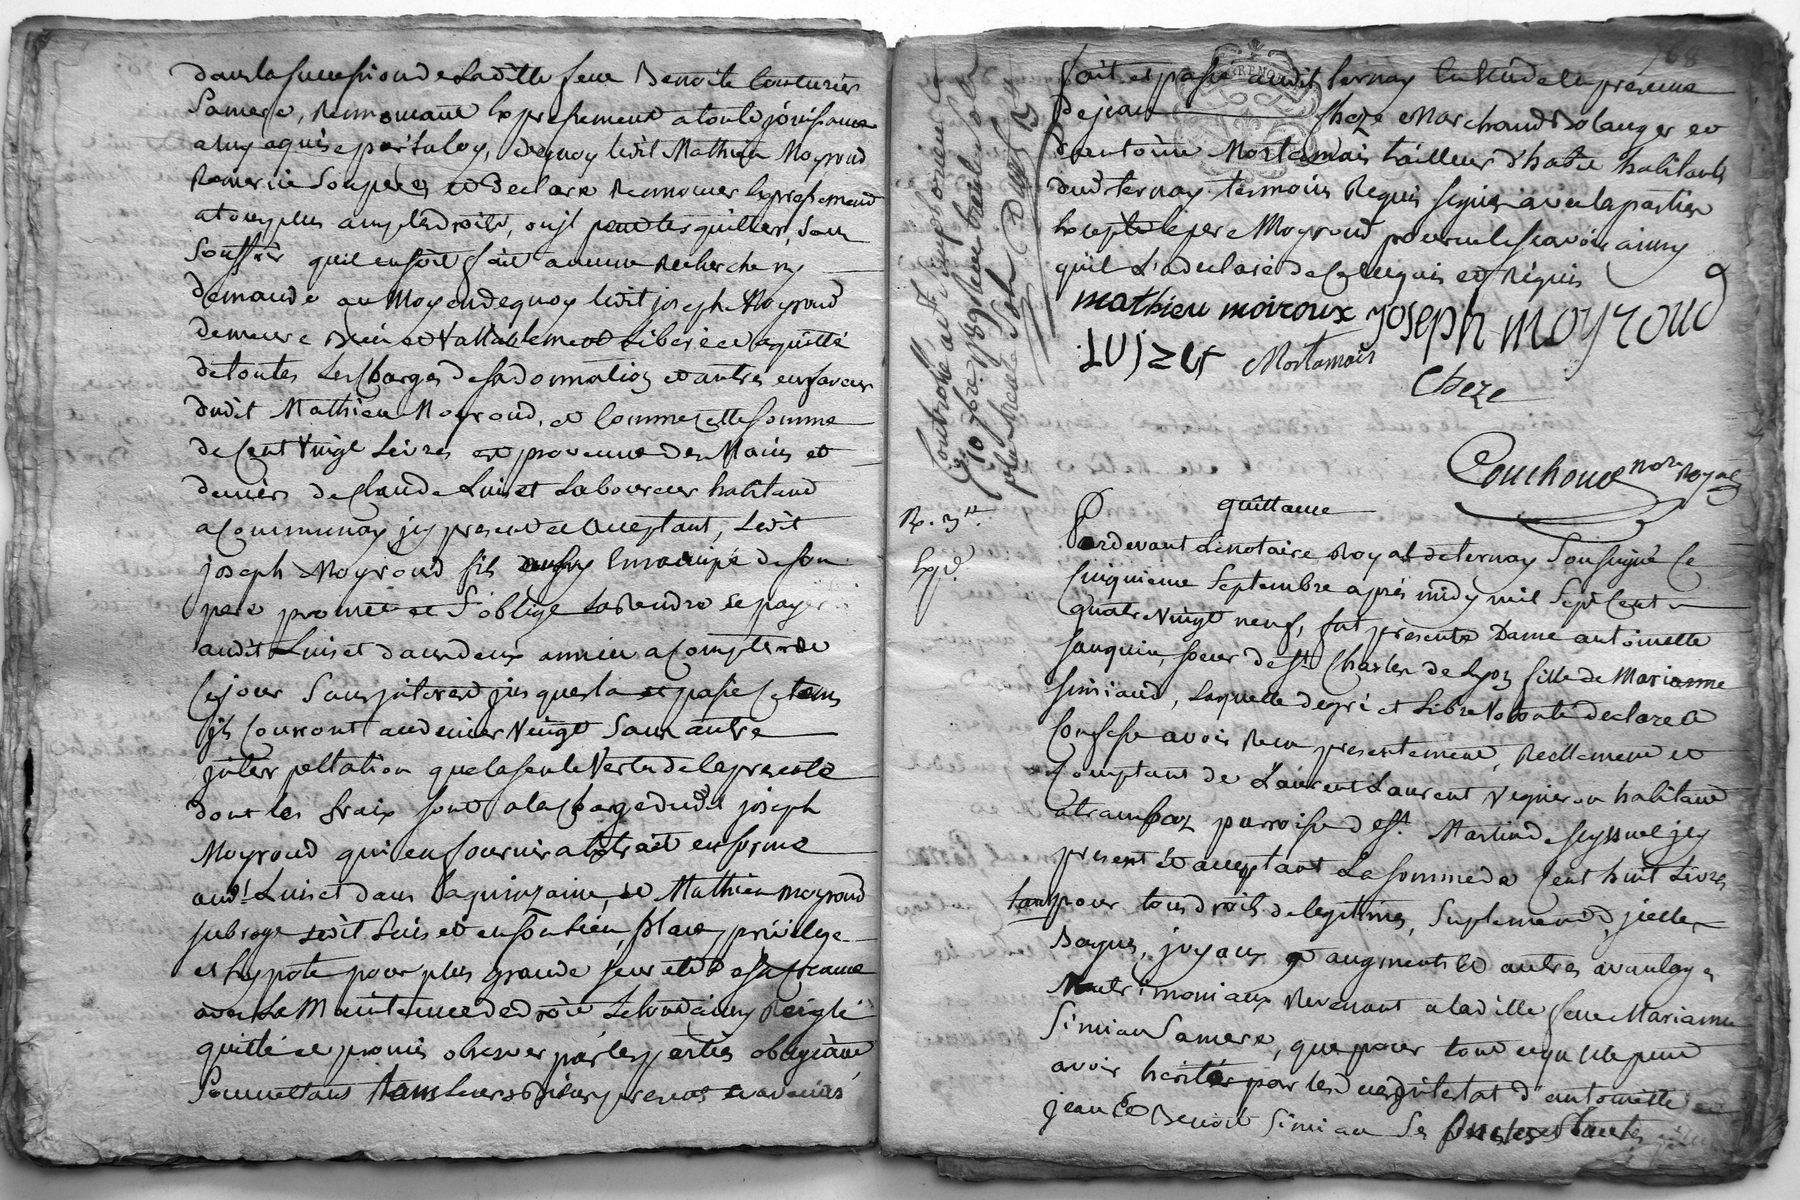 dans la succession de laditte feue Benoite Couturier
sa mere, Renoncant Expressement a toute jouissance
a luy aquise par sa loy, dequoy ledit Mathieu Moyroud
Remercie son pere et Declare Renoncer Expressement
a tous plus amples droits, ouït pour les quitter, sans
souffrir quil en soit fait aucune Recherche ny
demande au Moyen dequoy ledit joseph Moyroud
demeure Bien et Vallablement Libéré et aquitté
de toutes les Charges de sa donnation et autres en faveur
dudit Mathieu Moyroud, et Comme cette somme
de Cent Vingt Livres est provenue des Mains et
deniers de Claude Luiset Laboureur habitant
a Communay jcy present et acceptant, Ledit
joseph Moyroud fils Emancipé de son
pere promet et s'oblige la Rendre et payer
audit Luiset dans deux années a Compter de
Ce jour sans jnterest jusques la et passé Ce tems
jls Courront au denier Vingt sans autre
jnterpellation que la seule Vertu de la presente
dont les fraix sont a la Charge dudit joseph
Moyroud qui en fournira Extrait en forme
audt Luiset dans la quinzaine, et Mathieu moyroud
subroge Ledit Luiset en son Lieu, place, privilege
et hypote pour plus grande seureté de sa Creance
avec la Maintenue de droit Le tout ainsy Reiglé
quitté et promis observer par les parties obligeant
soumettant tous leurs Biens presents et avenirs
68
fait et passé audit ternay En l'étude en presence
de jean Cheze Marchand Bolanger et
d'antoine Mortamais tailleur d'habit habitants
dudt ternay temoins Requis signés avec la parties
Excepté le pere Moyroud pour ne le scavoir ainsy
quil L'a declaré de Ce Enquis et Requis
mathieu moiroux joseph moyroud
LUIZEt Mortamais
Cheze
Couchoud notre Royal
Controllé a St simphorien le
10 7bre 1789 Reçu trente sols
quittance
Ro. 3tt.
Exp.
Pardevant Le notaire Royal de ternay soussigné Ce
cinquieme septembre après midy mil sept Cent
quatre Vingt neuf, fut presente Dame antoinette
janquin, soeur de St Charles de Lyon fille de Marianne
simiand, laquelle de gré et Libre Volonté declare et
Confesse avoir Recu presentement, Reellement et
Comptant de Laurent Laurent Vigneron habitant
a paroisse de St. Martin de seyssuel jcy
present et acceptant La somme de Cent huit Livres
tant pour tous droits de legitimes, suplement d'jcelles
Bagues, joyaux augments et autres avantages
Matrimoniaux Revenant a laditte feue Marianne
simian sa mere, que pour tout ce qu'elle peut
avoir herité par le decès jntestat d'antoinette
jean Et Benoit simian ses oncles et tantes